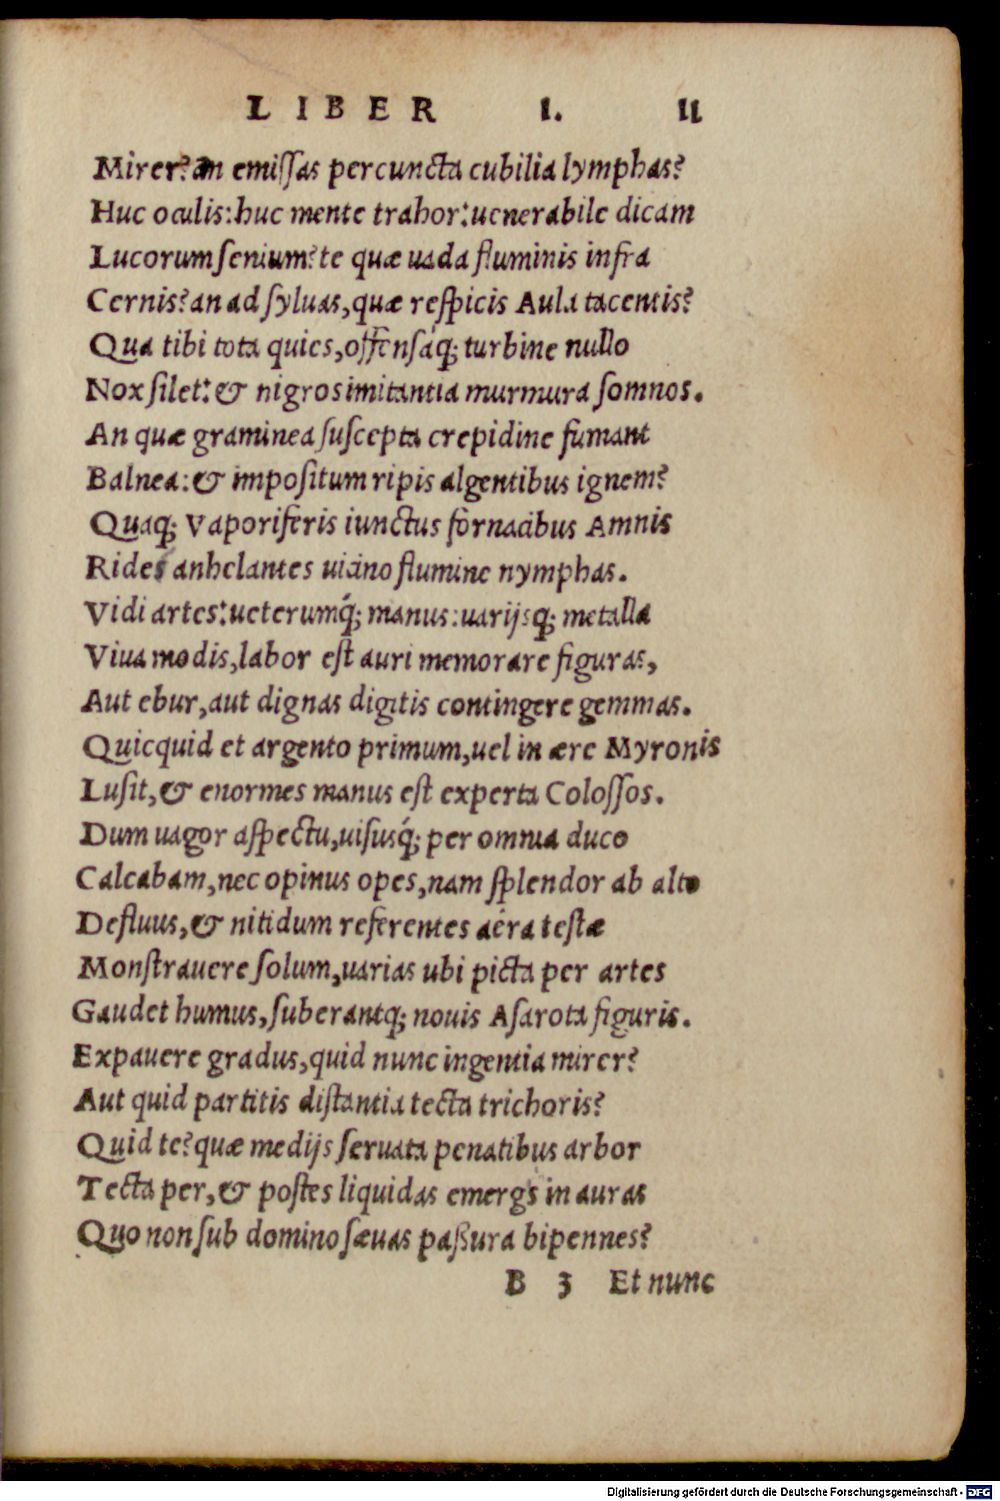 LIBER I. 11
Mirer? an emiſſas per cuncta cubilia lymphas?
Huc oculis: huc mente trahor: uenerabile dicam
Lucorum ſenium? te quæ uada fluminis infra
Cernis? an ad ſyluas, quæ reſpicis Aula tacentis?
Qua tibi tota quies, offenſáq; turbine nullo
Nox ſilet: & nigros imitantia murmura ſomnos.
An quæ graminea ſuſcepta crepidine fumant
Balnea: & impoſitum ripis algentibus ignem?
Quaq; Vaporiferis iunctus fornacibus Amnis
Rides anhelantes uicino flumine nymphas.
Vidi artes: ueterumq́; manus: uarijsq; metalla
Viua modis, labor eſt auri memorare figuras,
Aut ebur, aut dignas digitis contingere gemmas.
Quicquid et argento primum, uel in ære Myronis
Luſit, & enormes manus eſt experta Coloſſos.
Dum uagor aſpectu, uiſusq́; per omnia duco
Calcabam, nec opinus opes, nam ſplendor ab alto
Defluus, & nitidum referentes aëra teſtæ
Monſtrauere ſolum, uarias ubi picta per artes
Gaudet humus, ſuberantq; nouis Aſarota figuris.
Expauere gradus, quid nunc ingentia mirer?
Aut quid partitis diſtantia tecta trichoris?
Quid te? quæ medijs ſeruata penatibus arbor
Tecta per, & poſtes liquidas emergs in auras
Quo non ſub domino ſæuas paßura bipennes?
B 3 Et nunc
Digitalisierung gefördert durch die Deutsche Forschungsgemeinschaft - DFG